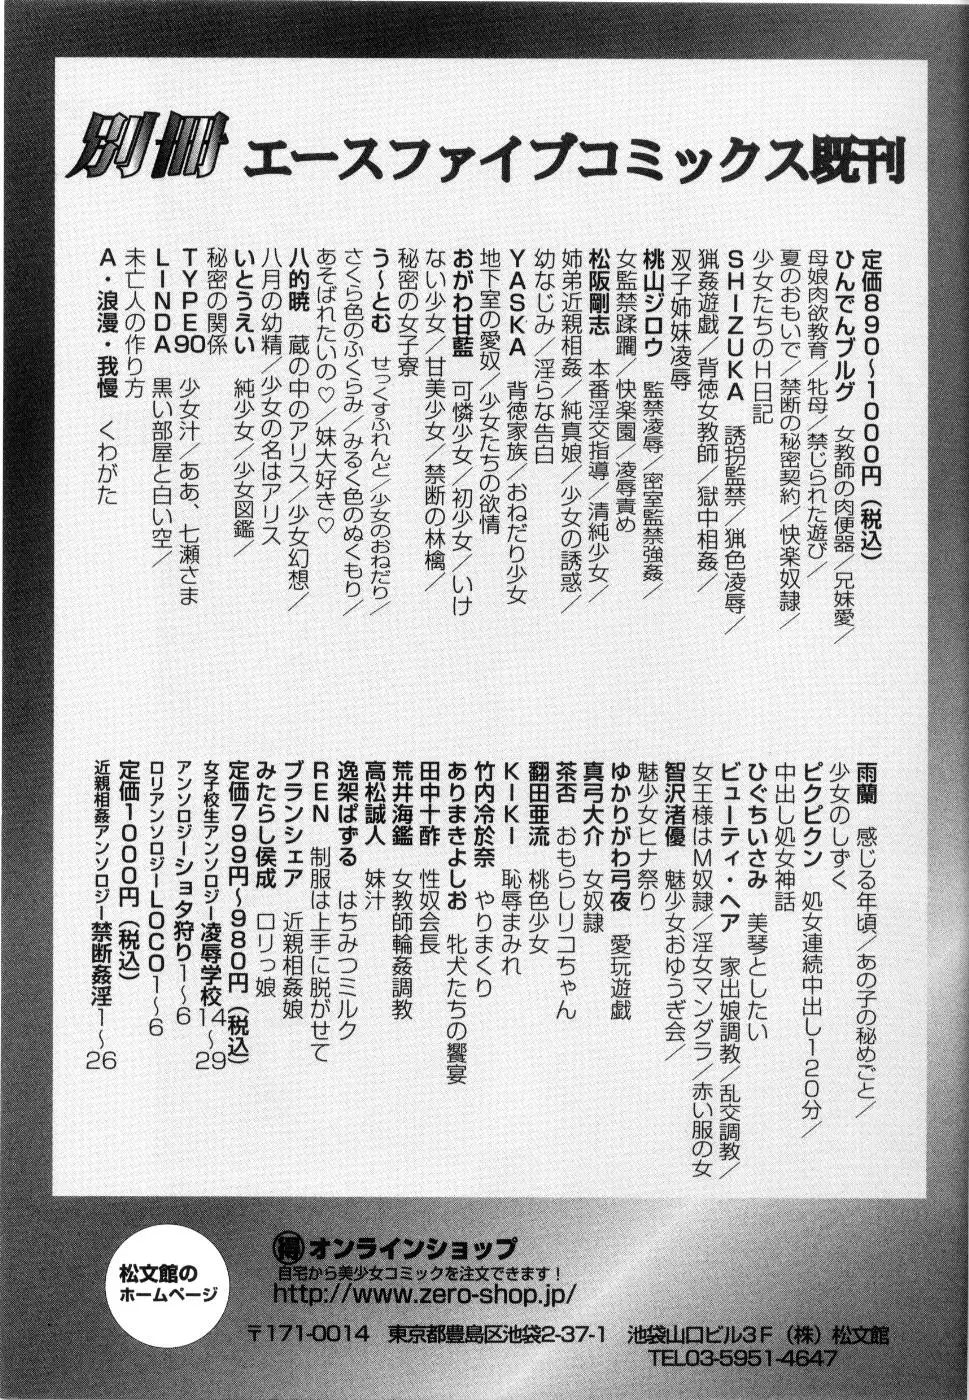 別冊 エースファイブコミックス既刊
定価890〜1000円（税込）
ひんでんブルグ　女教師の肉便器／兄妹愛／
母娘肉欲教育／牝母／禁じられた遊び／
夏のおもいで／禁断の秘密契約／快楽奴隷／
少女たちのH日記
SHIZUKA　誘拐監禁／猟色凌辱／
猟姦遊戯／背徳女教師／獄中相姦／
双子姉妹凌辱
桃山ジロウ　監禁凌辱／密室監禁強姦／
女監禁蹂躙／快楽園／凌辱責め
松阪剛志　本番淫交指導／清純少女／
姉弟近親相姦／純真娘／少女の誘惑／
幼なじみ／淫らな告白
YASKA　背徳家族／おねだり少女
地下室の愛奴／少女たちの欲情
おがわ甘藍　可憐少女／初少女／いけ
ない少女／甘美少女／禁断の林檎／
秘密の女子寮
う〜とむ　せっくすふれんど／少女のおねだり／
さくら色のふくらみ／みるく色のぬくもり／
あそばれたいの♡／妹大好き♡
八的暁　蔵の中のアリス／少女幻想／
八月の幼精／少女の名はアリス
いとうえい　純少女／少女図鑑／
秘密の関係
TYPE90　少女汁／ああ、七瀬さま
LINDA　黒い部屋と白い空／
未亡人の作り方
A・浪漫・我慢　くわがた
雨蘭　感じる年頃／あの子の秘めごと／
少女のしずく
ピクピクン　処女連続中出し120分／
中出し処女神話
ひぐちいさみ　美琴としたい
ビューティ・ヘア　家出娘調教／乱交調教／
女王様はM奴隷／淫女マンダラ／赤い服の女
智沢渚優　魅少女おゆうぎ会／
魅少女ヒナ祭り
ゆかりがわ弓夜　愛玩遊戯
真弓大介　女奴隷
茶否　おもらしリコちゃん
翻田亜流　桃色少女
KIKI　恥辱まみれ
竹内冷於奈　やりまくり
ありまきよしお　牝犬たちの饗宴
田中十酢　性奴会長
荒井海鑑　女教師輪姦調教
高松誠人　妹汁
逸架ぱずる　はちみつミルク
REN　制服は上手に脱がせて
ブランシェア　近親相姦娘
みたらし侯成　ロリっ娘
定価799円〜980円（税込）
女子校生アンソロジー凌辱学校14〜29
アンソロジーショタ狩り1〜6
ロリアンソロジーLOCO1〜6
定価1000円（税込）
近親相姦アンソロジー禁断姦淫1〜26
松文館の
ホームページ
得オンラインショップ
自宅から美少女コミックを注文できます！
http://www.zero-shop.jp/
〒171-0014　東京都豊島区池袋2-37-1　池袋山口ビル3F（株）松文館
TEL03-5951-4647